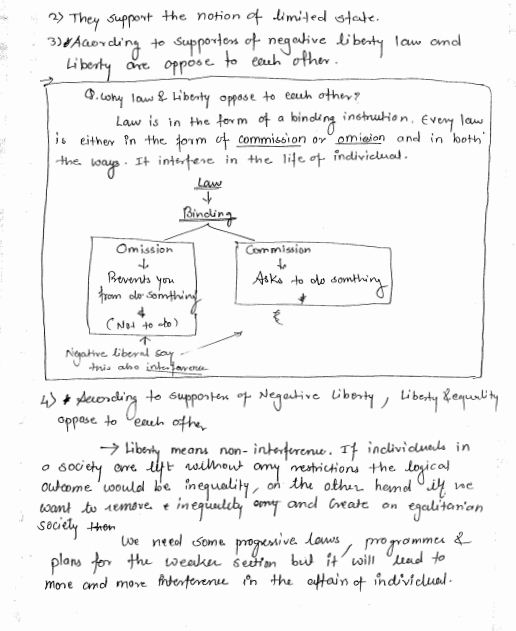 2) They support the notion of limited state.
3) Acording to supporters of negative liberty law and
Liberty are oppose to each other.
Q. why law & Liberty oppose to each other?
Law is in the form of a binding instrution. Every law
is either in the form of commission or omision and in both
the ways. It interfere in the life of individual.
Law
↓
Binding
Omission
↓
Prevents you
from do somthing
↓
(Not to do)
Commission
↓
Asks to do somthing
Negative liberal say
this also interference
4) Acording to supporters of Negative Liberty, Liberty & equality
oppose to each other
→ Liberty means non-interference. If individuals in
a society are left without any restrictions the logical
outcome would be inequality, on the other hand if we
want to remove inequality any and create an egalitarian
society then
We need some progressive laws, programmes &
plans for the weaker section but it will lead to
more and more interference in the affairs of individual.